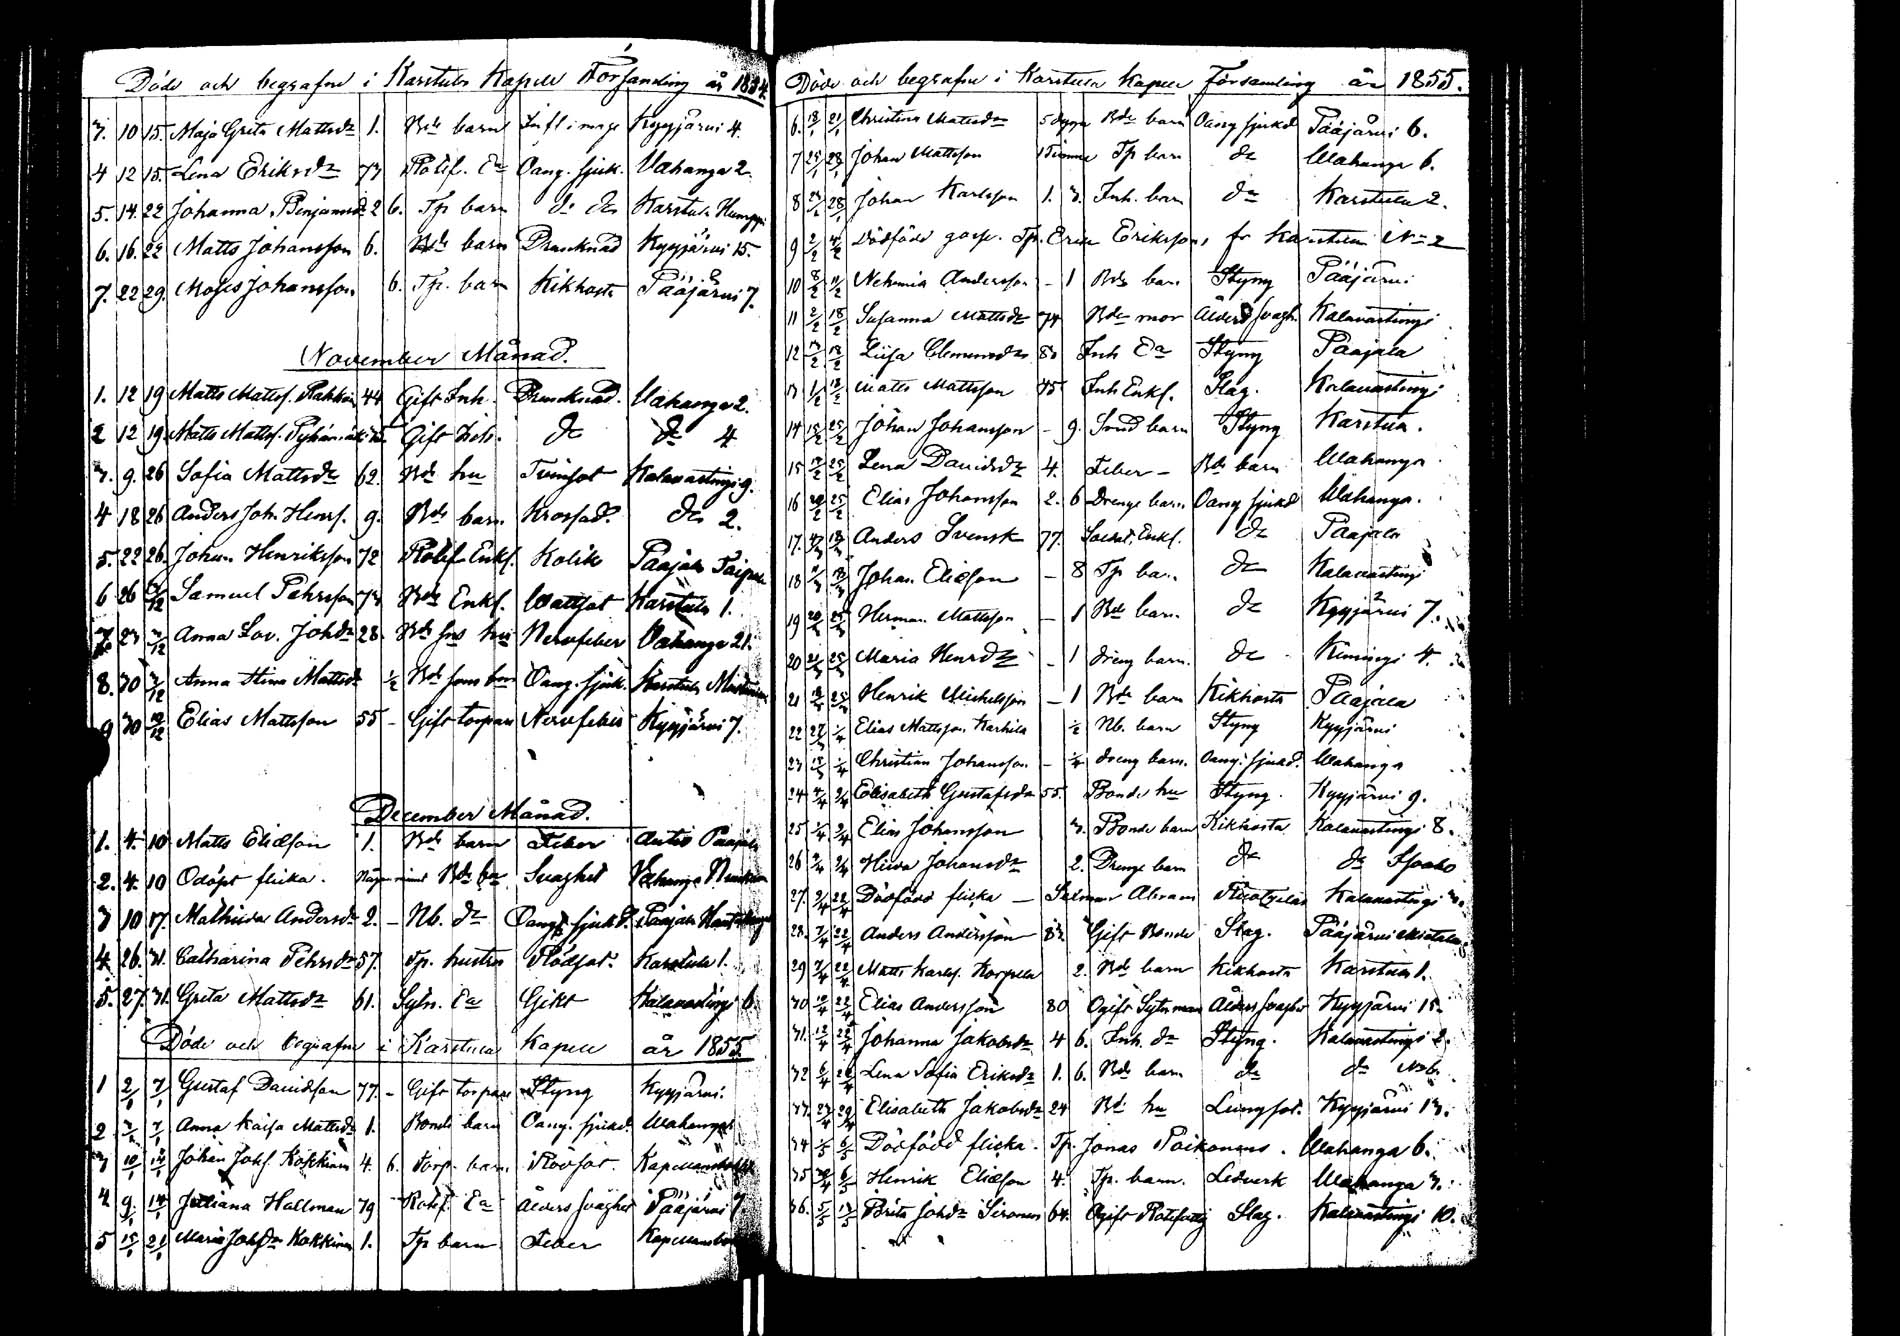 Döde och begrafne i Karstula Kapell Församling år 1854.
3. 10 15. Maja Greta Mattsdr 1. Bde barn Inflimage Kyyjärvi 4.
4 12 15. Lena Eriksdr 73 Rotef. Ea Oang. sjuk. Vahanga 2.
5. 14. 22 Johanna Benjamsdr 2 6. Tp barn do do Karstula
6. 16. 22 Matts Johansson 6. Bde barn Drunknad Kyyjärvi 15.
7. 22 29. Moses Johansson 6. Tp. barn Kikhosta Pääjärvi 7.
November Månad.
1. 12 19 Matts Mattss. 44 Gift Inh. Drunknad. Vahanga 2.
2 12 19. Matts Mattss. Gift Inh. do do 4
3. 9. 26 Sofia Mattsdr 62. Bde hu Tvinsot Kalavastingi 9.
4 18 26 Anders Joh. Henrs. 9. Bde barn Krossad. do 2.
5. 22 26. Johan Henriksson 72 Rotef Enkl. Kolik Paajala
6 26 3/12 Samuel Pehrsson 73 Bde Enkl. Wattsot Karstula 1.
7. 23 3/12 Anna Lov. Johdr 28. Bde sns hu Nervfeber Vahanga 21.
8. 30 3/12 Anna Stina Mattsdr 1/2 Bde sons barn Oang. sjuk. Karstula
9 30 10/12 Elias Mattsson 55 - Gift torpare Nervfeber Kyyjärvi 7.
December Månad.
1. 4. 10 Matts Eliasson 1. Bde barn Feber Paajala
2. 4. 10 Odöpt flicka. Bde barn Svaghet Vahanga
3 10 17. Mathilda Andersdr 2. - Nb. do Oang. sjukd. Paajala
4 26. 31. Catharina Pehrsdr 57. Tp. hustru Rödsot. Karstula 1.
5. 27. 31. Greta Mattsdr 61. Sytn. Ea Gikt Kalavastingi 6.
Döde och begrafne i Karstula Kapell år 1855.
1 2/1 7/1 Gustaf Davidsson 77. - Gift torpare Styng Kyyjärvi.
2 3/1 7/1 Anna Kaisa Mattsdr 1. Bonde barn Oang. sjukd. Wahanga
3 10/1 14/1 Johan Johs. Kokkinen 4. 6. Torp. barn Rödsot.
4 9/1 14/1 Juliana Hallman 79 Rotef. Ea Ålders svaghet Pääjärvi 7.
5 15/1 21/1 Maria Johsdr Kokkinen 1. Tp barn Feber
Döde och begrafne i Karstula Kapell Församling år 1855.
6. 18/1 21/1 Christina Mattsdr 5 dygn Bde barn Oang sjukd Pääjärvi 6.
7 25/1 28/1 Johan Mattsson 1 Timme Tp barn do Wahanga 6.
8 28/1 Johan Karlsson 1. 3. Inh. barn do Karstula 2.
9 2/2 4/2 Dödfödd gosse. Tp. Erik Erikssons, fr Karstula No 2
10 8/2 11/2 Nehemia Andersson - 1 Bde barn Styng Pääjärvi
11 2/2 18/2 Susanna Mattsdr 74 Bde mor Ålders svagh. Kalavastingi
12 18/2 Liisa Clemensdr 80 Inh Ea Styng Paajala
13 1/2 18/2 Matts Mattsson 75 Inh Enkl. Slag. Kalavastingi
14 25/2 Johan Johansson - 9. Smed barn Styng Karstula.
15 25/2 Lena Davidsdr 4. Feber - Bde barn Wahanga
16 20/2 25/2 Elias Johansson 2. 6 Drenge barn Oang sjukd Wahanga.
17. Anders Svensk 77. Enkl. do Paajala
18 Johan Eliasson - 8 Tp barn do Kalavastingi
19 20/3 25/3 Herman Mattsson - 1 Bde barn. do Kyyjärvi 7.
20 21/3 25/3 Maria Henrsdr - 1 dreng barn. do Kimingi 4.
21 18/3 25/3 Henrik Michelsson - 1 Bde barn Kikhosta Paajala
22 27/3 1/4 Elias Mattsson Karhila 1/2 Nb. barn Styng Kyyjärvi
23 1/4 Christian Johansson - 1/4 dreng barn. Oang. sjukd. Wahanga
24 Elisabeth Gustafsdr 55. Bonde hu Styng. Kyyjärvi 9.
25 Elias Johansson 3. Bonde barn Kikhosta Kalavastingi 8.
26 Hilda Johansdr 2. Drenge barn do do
27. 22/4 Dödfödd flicka - Kalavastingi
28. 7/4 22/4 Anders Andersson Gift Bonde Slag. Pääjärvi
29 7/4 22/4 Matts Karls. Korpela 2. Bde barn Kikhosta Karstula 1.
30 22/4 Elias Andersson 80 Ogift Sytnman Ålders svaghet Kyyjärvi 15.
31. 22/4 Johanna Jakobsdr 4 6. Inh. do Styng. Kalavastingi 2.
32 Lena Sofia Eriksdr 1. 6. Bde barn do do No 6.
33. 23/4 29/4 Elisabeth Jakobsdr 24 Bde hu Lungsot. Kyyjärvi 13.
34 6/5 Dödfödd flicka. Tp. Jonas Poikonens. Wahanga 6.
35 6/5 Henrik Eliasson 4. Tp. barn. Ledverk Wahanga 3.
36. 5/5 13/5 Brita Johdr Sironen 64. Ogift Rotefattig Slag. Kalavastingi 10.